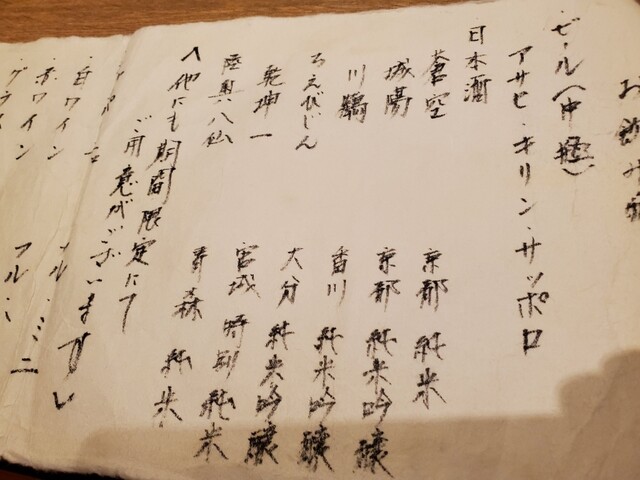 お飲み物
・ビール(中瓶)
アサヒ・キリン・サッポロ
日本酒
蒼空 京都 純米
城陽 京都 純米吟醸
川鶴 香川 純米吟醸
ちえびじん 大分 純米吟醸
乾坤一 宮城 特別純米
陸奥八仙 青森 純米
へ他にも期間限定にて
ご用意がございます
・白ワイン
・赤ワイン フル・ミニ
・グラス フル・ミ